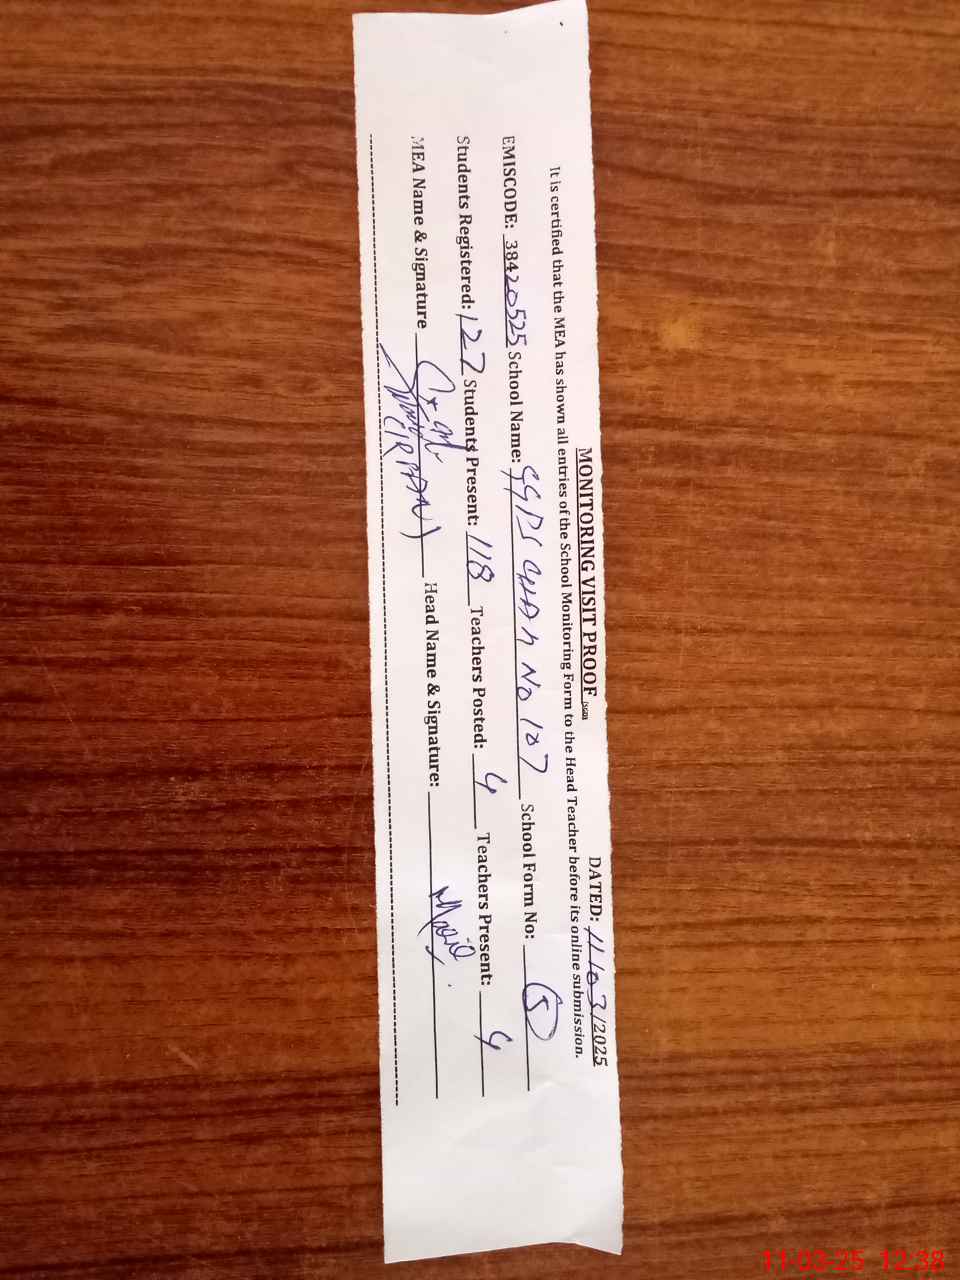 MONITORING VISIT PROOF (SGD) DATED: 11/03/2025
It is certified that the MEA has shown all entries of the School Monitoring Form to the Head Teacher before its online submission.
EMISCODE: 38420525 School Name: GGPS CHAK NO 107 School Form No: 5
Students Registered: 127 Students Present: 118 Teachers Posted: 4 Teachers Present: 4
MEA Name & Signature (IRFAN) Head Name & Signature:
11-03-25 12:38